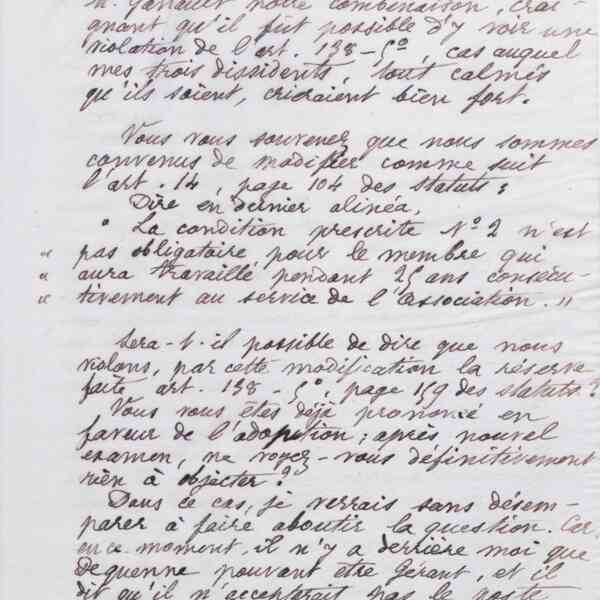 M. Garrault notre combinaison, crai-
gnant qu'il fût possible d'y voir une
violation de l'art. 138-5°, cas auquel
mes trois dissidents, tout calmés
qu'ils soient, crieraient bien fort.
Vous vous souvenez que nous sommes
convenus de modifier comme suit
l'art. 14, page 104 des statuts :
Dire en dernier alinéa,
" La condition prescrite N° 2 n'est
" pas obligatoire pour le membre qui
" aura travaillé pendant 25 ans consécu-
" tivement au service de l'Association. "
Sera-t-il possible de dire que nous
violons, par cette modification la réserve
faite art. 138-5°, page 159 des statuts ?
Vous vous êtes déjà prononcé en
faveur de l'adoption ; après nouvel
examen, ne voyez-vous définitivement
rien à objecter ?
Dans ce cas, je verrais sans désem-
parer à faire aboutir la question. Car,
en ce moment, il n'y a derrière moi que
Dequenne pouvant être Gérant, et il
dit qu'il n'accepterait pas le poste